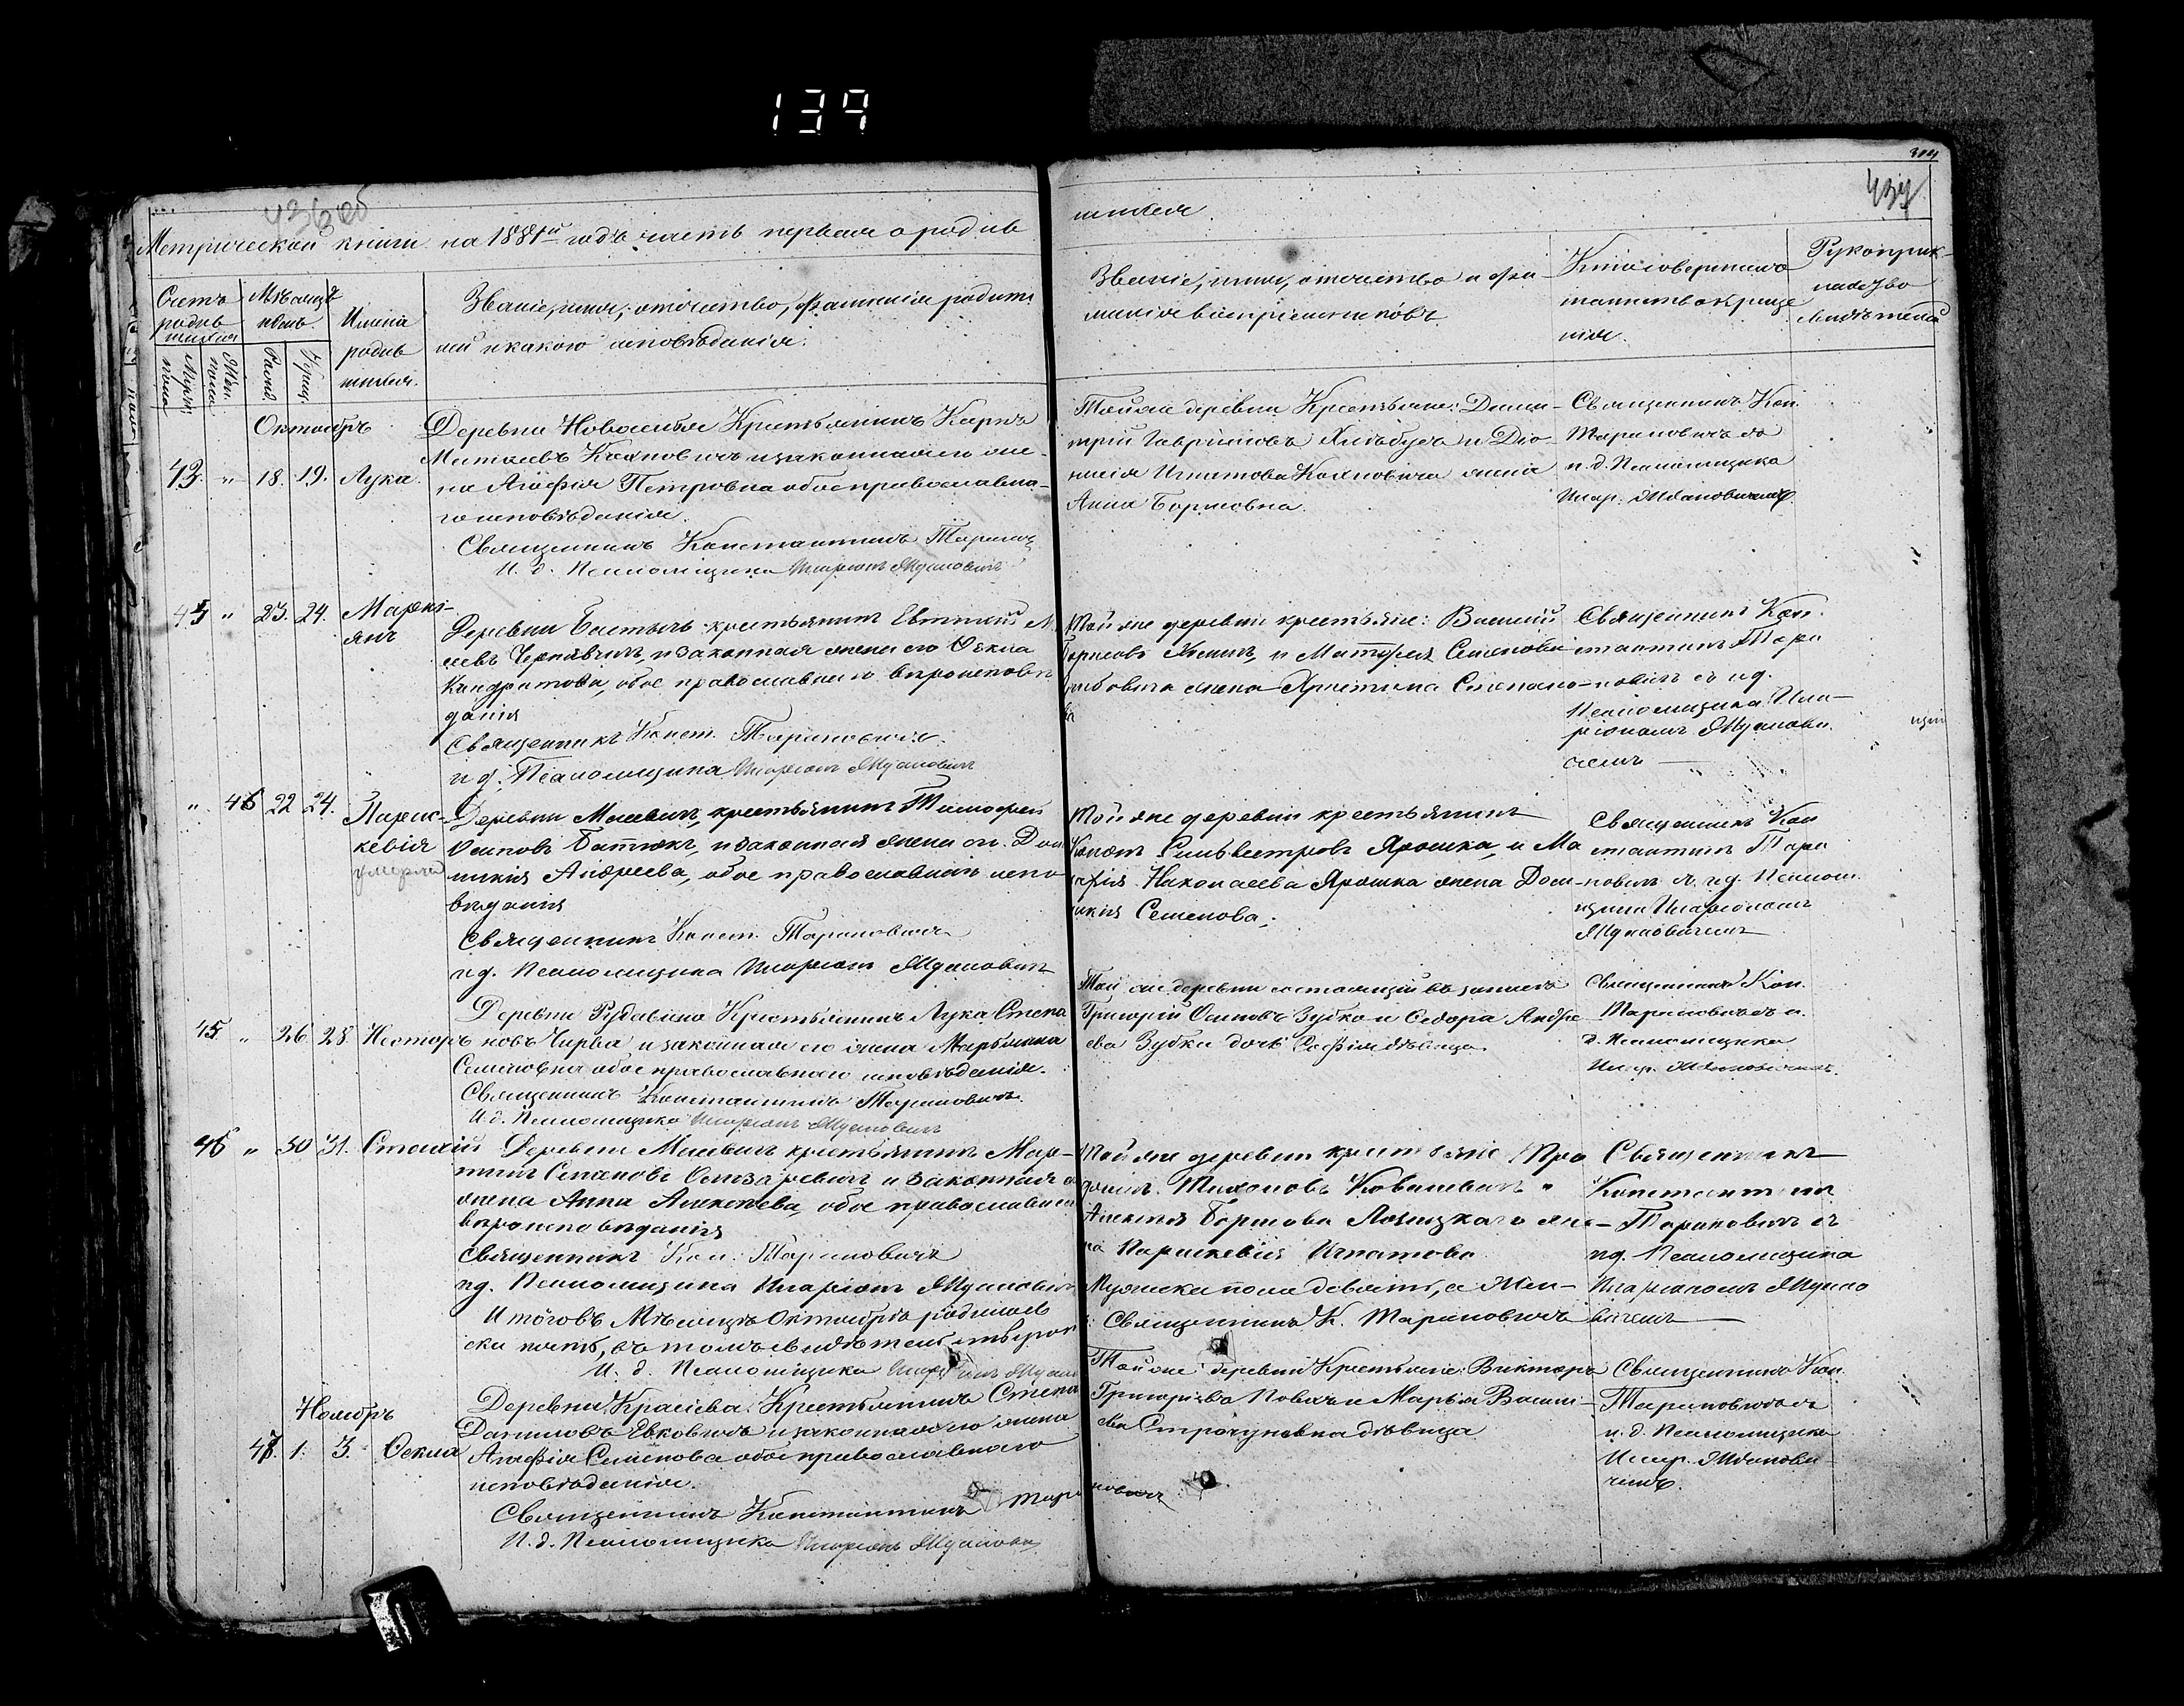 139
436 об
Метрической книги на 1881й годъ часть первая о родив
шихся.
437
Счетъ родив шихся
Мужес. пола
Жен. пола
Мѣсяцъ и день.
Рожд.
Крещ.
Имена родив шихся.
Званіе, имя, отчество, фамилія родите
лей и какого исповѣданія.
Званіе, имя, отчество и фа-
милія воспріемниковъ.
Кто совершалъ
таинство креще
нія.
Рукоприк-
Октябрь
43. " 18. 19. Лука.
Деревни Новоселья Крестьянинъ Карпъ
Матѳеевъ Каяновичъ и законная его же-
на Агафія Петровна обое православна-
го исповѣданія.
Священникъ Константинъ Тарано
И. д. Псаломщика Иларіонъ Ждановичъ
Той же деревни Крестьяне: Дими-
трій Гавриловъ и Діо-
нисія Игнатова Каяновича жена
Анна Борисовна.
Священникъ Кон.
Тарановичъ съ
и. д. Псаломщика
Илар. Ждановичемъ
44 " 23. 24. Маркі-
янъ
Деревни крестьянинъ Евтихій
еевъ Чернявчикъ, и законная жена его Ѳекла
Кондратова, обое православнаго вѣроисповѣ
данія
Священникъ Конст. Тарановичъ
и д. Псаломщика Иларіонъ Ждановичъ
Той же деревни крестьяне: Василій
Борисовъ и Семенова
жена Христина Степано-
ва
Священникъ Кон-
стантинъ Тара
новичъ съ и д.
Псаломщика Ила-
ріономъ Жданови
чемъ
" 46 22 24. Парас-
кевія
умерла
Деревни Масевичъ, крестьянинъ Тимофей
Осиповъ Батюкъ, и законная жена его Дом
никія Андреева, обое православнаго испо
вѣданія
Священникъ Конст. Тарановичъ
и д. Псаломщика Иларіонъ Ждановичъ
Той же деревни крестьянинъ
Сильвестровъ Ярошка, и Ма
Николаева Ярошка жена Дом-
никія Семенова.
Священникъ Кон
стантинъ Тара
новичъ съ и д. Псалом
щика Иларіономъ
Ждановичемъ
45 " 26. 28. Несторъ
Деревни Крестьянинъ Лука Степа
новъ Чирва и законная его жена Марьянна
Семеновна обое православнаго исповѣданія.
Священникъ Константинъ Тарановичъ.
И. д. Псаломщика Иларіонъ Ждановичъ
Той же деревни состоящій въ запасѣ
Григорій Осиповъ Зубко и Ѳедора Андре
ева Зубки дочь Софія дѣвица.
Священникъ Кон.
Тарановичъ съ и.
д. Псаломщика
Илар. Ждановичемъ.
46 " 30 31. Стахій
Деревни Масевичъ крестьянинъ Мар-
тинъ Степановъ и законная его
жена Анна Алексѣева, обое православнаго
вѣроисповѣданія
Священникъ Кон. Тарановичъ
и д. Псаломщика Иларіонъ Ждановичъ
Той же деревни крестьяне Про
Тихоновъ Ковалевичъ и
Алексѣя Борисова Лозицкаго же-
на Параскевія Игнатова
Священникъ
Константинъ
Тарановичъ съ
и д. Псаломщика
Иларіономъ Ждано
вичемъ
Итого въ Мѣсяцѣ Октябрѣ родилось
Мужска пола девять, а Жен-
ска пять, въ томъ свидѣтельствуютъ
: Священникъ К. Тарановичъ
И. д. Псаломщика Иларіонъ Ждано
Ноябрь
47. 1. 3. Ѳекла
Деревни Красіева Крестьянинъ Степа
Даниловъ Евковичъ и законная его жена
Агафія Семенова обое православнаго
исповѣданія.
Священникъ Константинъ Тарановичъ
И. д. Псаломщика Иларіонъ Жданови
Той же деревни Крестьяне: Викторъ
Григорьевъ и Марья Васили-
ева дѣвица
Священникъ Кон.
Тарановичъ съ
и. д. Псаломщика
Илар. Жданови-
чемъ.